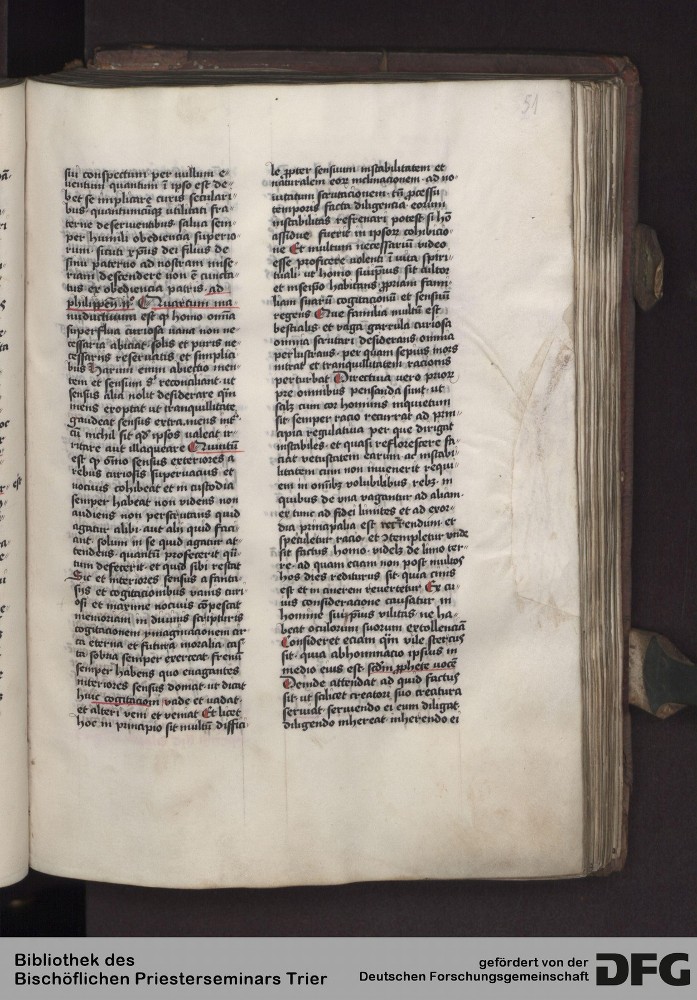 51
sui conspectum per nullum e-
uentum quantum ī ipso est de-
bet se implicare curis seculari-
bus quantumcūqꝫ utilitati fra-
terne deseruientibus salua sem-
per humili obediencia superio-
rum sicuti xp̄us dei filius de
sinu paterno ad nostram mise-
riam descendere non ē cuncta-
tus ex obediencia patris. ad
philippen̄ ijº Quartum ma-
nuductiuum est qꝫ homo om̄ia
superflua curiosa uana non ne-
cessaria abiciat solis et puris ne-
cessariis reseruatis et simplici-
bus Harum enim abiectio men-
tem et sensum sꝫ reconciliant ut
sensus alia nolit desiderare qm̄
mens eroptat ut tranquillitate
gaudeat sensus extra mens int-
cū nichil sit qd̄ ipsos ualeat ir-
ritare aut illaqueare Quintū
est qꝫ om̄io sensus exteriores a
rebus curiosis superuacuis et
nociuis cohibeat et in custodia
semper habeat non uidens non
audiens non perscrutans quid
agatur alibi aut alij quid faci-
ant solum in se quid agatur at-
tendens quantū profecerit qn̄-
tum defecerit et quid sibi restat
Sic et interiores sensus a fanta-
sijs et cogitacionibus uanis curi-
osi et maxime nociuis cōpescat
memoriam in diuinis scripturis
cogitacionem ymaginacionem cir-
ca eterna et futura moralia cas-
ta sobria semper exerceat frenū
semper habens quo euagantes
interiores sensus domat ut dicat
huic cogitacioni uade et uadat
et alteri veni et veniat Et licet
hoc in principio sit multū diffici-
le ꝓpter sensuum instabilitatem et
naturalem eoꝝ inclinacionem ad no-
uitatum scrutacionem tn̄ ꝓcessu
temporis facta diligencia eorum
instabilitas refrenari potest si hō
assidue fuerit in ipsoꝝ cohibicio-
ne Et multum necessariū video
esse proficere uolenti ī uita spiri-
tuali ut homo suiipsius sit cultor
et in seipso habitans ꝓpriam fami-
liam suarū cogitacionū et sensuū
regens Que familia multū est
bestialis et uaga garrula curiosa
omnia scrutari desiderans omnia
perlustrans per quam sepius mors
intrat et tranquillitatem racionis
perturbat Directiua uero prior
pre omnibus pensanda sunt ut
salꝫ cum cor hominis inquietum
sit semper racio recurrat ad prin-
cipia regulatiua per que dirigat
instabiles et quasi reflorescere fa-
ciat uetustatem earum ac instabi-
litatem cum non inuenerit requi-
em in om̄ibꝫ uolubilibus rebꝫ in
quibus de una uagantur ad aliam
ex tunc ad fidei limites et ad exor-
dia principalia est recurrendum et
speculetur racio et ꝯtempletur unde
sit factus homo videlꝫ de limo ter-
re ad quam eciam non post multos
hos dies rediturus sit quia cinis
est et in cinerem reuertetur Ex cu-
ius consideracione causatur in
homine suiipsius vilitas ne ha-
beat oculorum suorum extollenciā
Consideret eciam qm̄ vile stercus
sit quia abhominatio ipsius in
medio eius est scdm̄ ꝓphete uocē
Deinde attendat ad quid factus
sit ut scilicet creatori suo creatura
seruiat seruiendo ei eum diligat
diligendo inhereat inherendo ei
Bibliothek des
Bischöflichen Priesterseminars Trier
gefördert von der
Deutschen Forschungsgemeinschaft
DFG